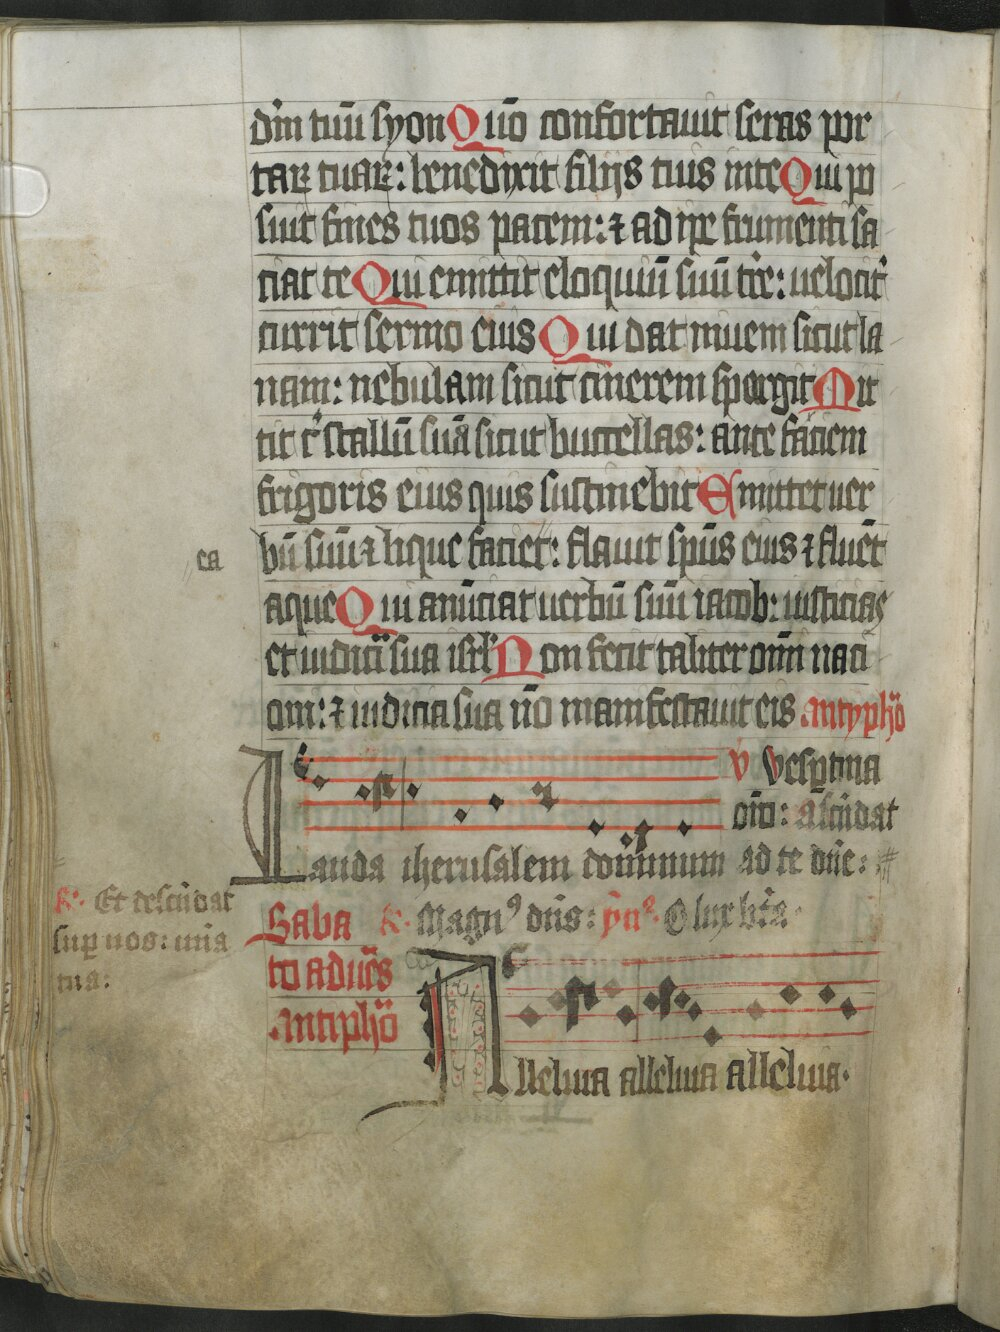 dn̄m tuū syon Quō confortauit seras por
taꝝ tuaꝝ: benedixit filijs tuis in te Qui po
suit fines tuos pacem: ⁊ adipe frumenti sa
ciat te Qui emittit eloquiū suū tr̄e: uelocit͛
currit sermo eius Qui dat niuem sicut la
nam: nebulam sicut cinerem spargit Mit
tit c͛stallū suā sicut buccellas: ante faciem
frigoris eius quis sustinebit Emittet uer
bū suū ⁊ liquefaciet: flauit sp̄us eius ⁊ fluēt
ea
aque Qui anūciat uerbū suū iacob: iusticias
et iudicia sua isrl̄ Non fecit taliter om̄i naci
oni: ⁊ iudicia sua nō manifestauit eis Antyphō
v̄ Vesp̄tina
oro: ascendat
Lauda iherusalem dominum ad te dn̄e:
R. Et descēdat
sup nos: mīa
tua:
Saba R. Magn⁹ dn̄s: ẏn⁹. O lux bt̄a.
to ad ues
Antiphō
Alleluia alleluia alleluia.